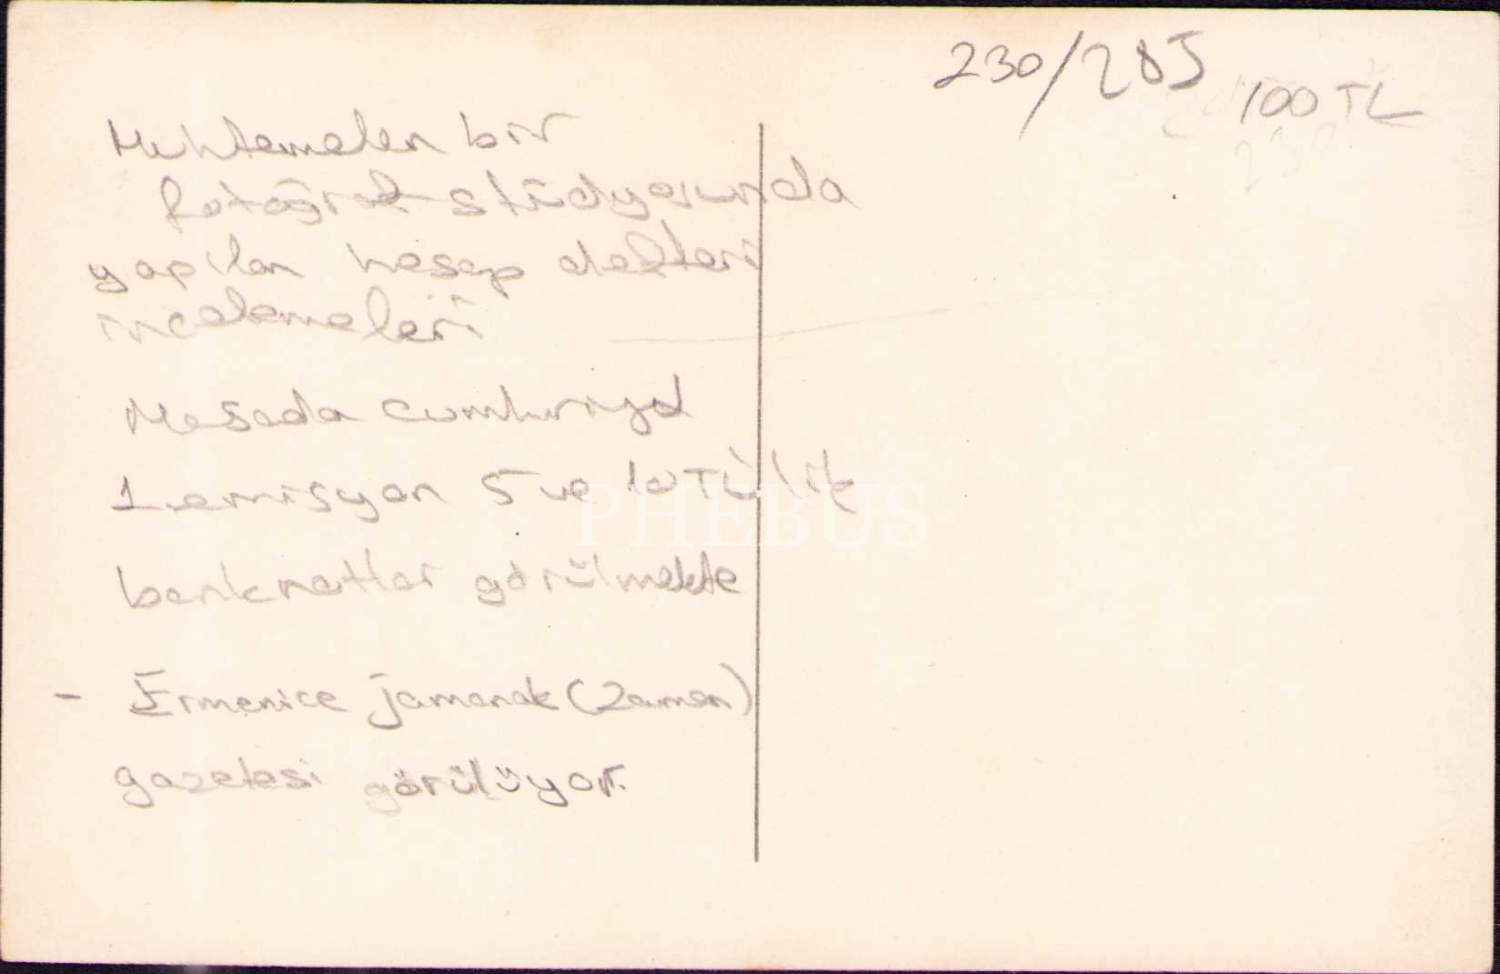 230/285
100 TL
Muhtemelen bir
fotoğraf stüdyosunda
yapılan hesap defteri
incelemeleri
Masada cumhuriyet
1.emisyon 5 ve 10 TL'lik
banknotlar görülmekte
- Ermenice Jamanak (Zaman)
gazetesi görülüyor.
PHEBUS